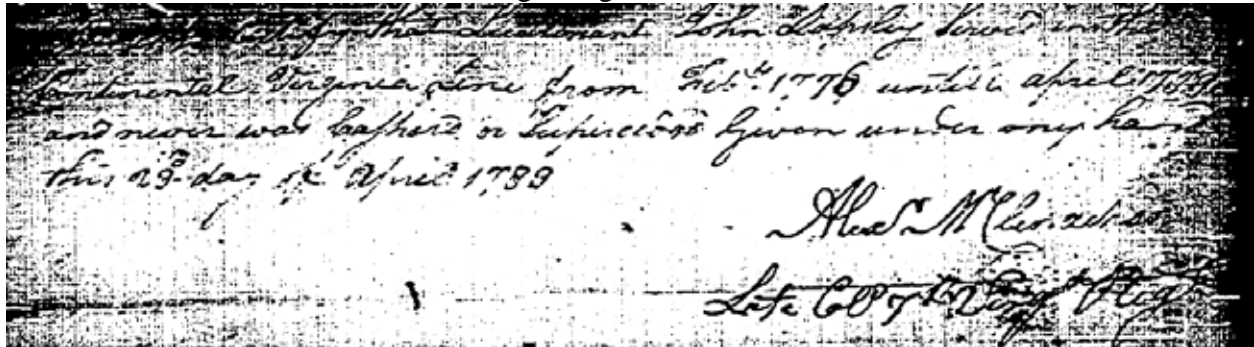 Certify that Lieutenant John Lapsley Served in the
Continental Virginia Line from Feb. 1776 until april
and never was Cashierd or Superceded Given under my hand
this 29 day of April 1789
Alexr McClenachan
Late Coll 7th Virga Regt